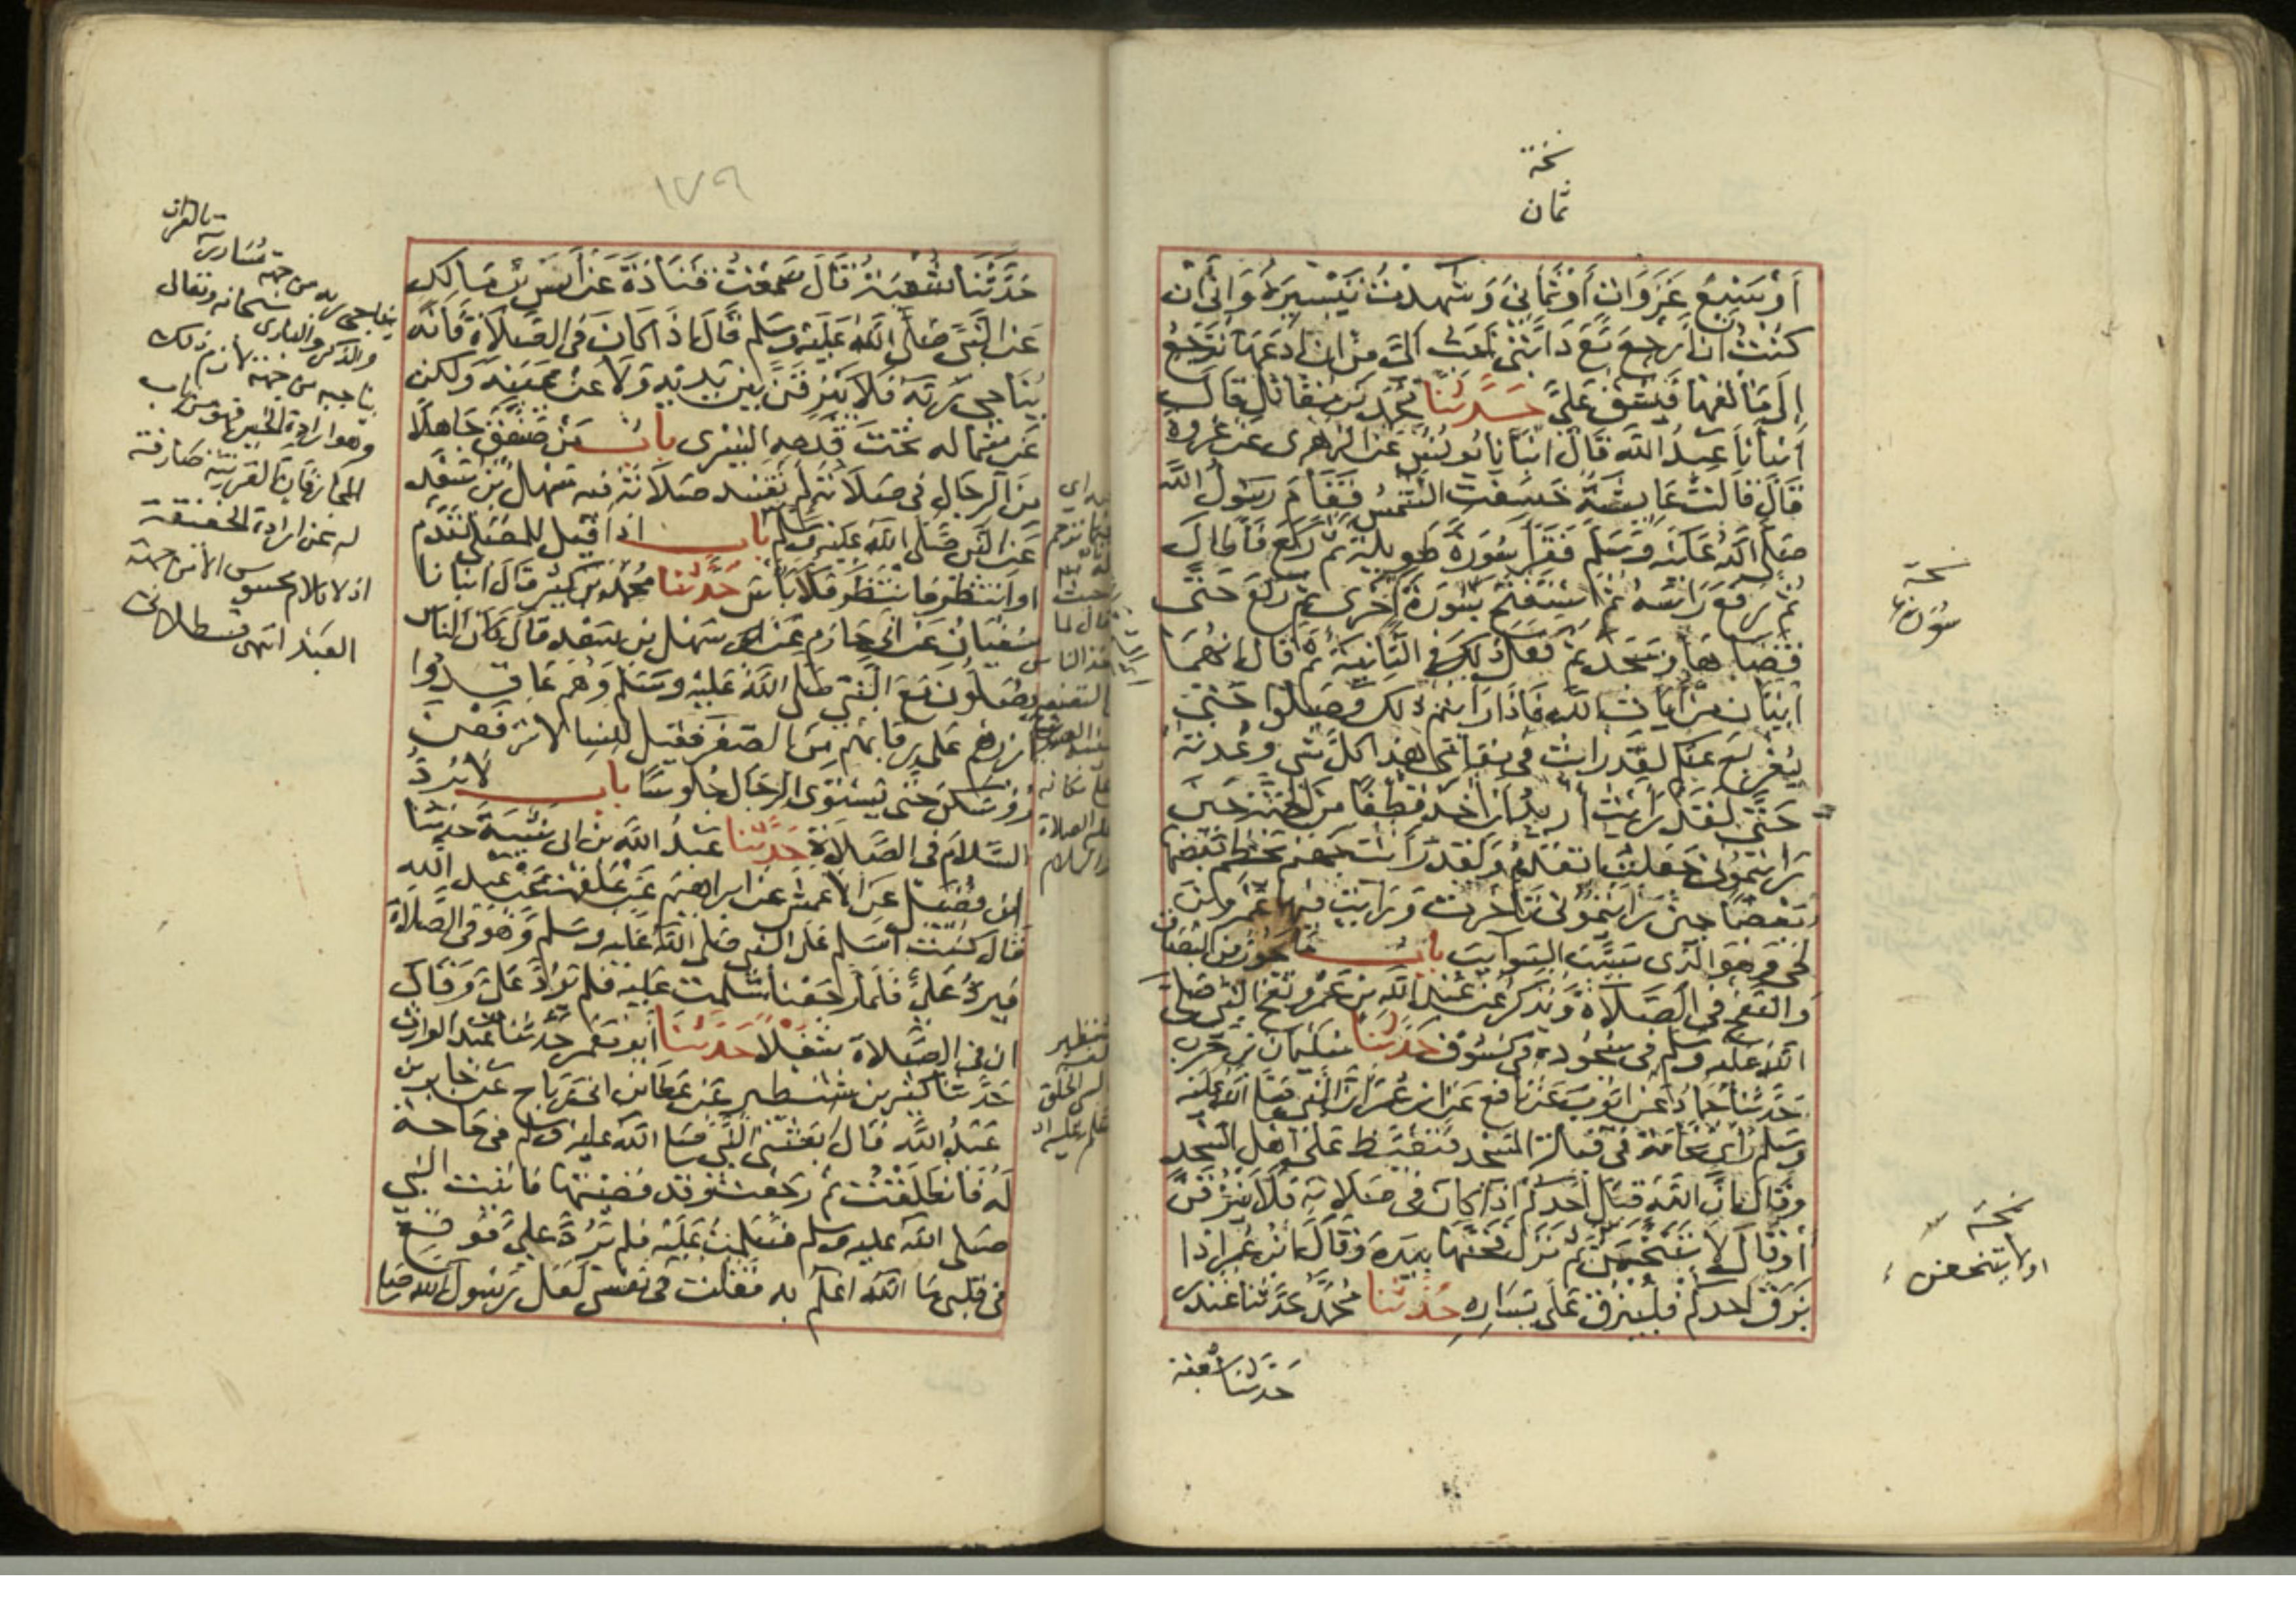 نسخة
ثمان
أو سبع غزوات أو ثماني وشهدت تيسيره واني ان
كنت ان ارجع مع دابتي احب الي من ان ادعها ترجع
إلى مالفها فيشق علي حدثنا محمد بن مقاتل قال
أنبأنا عبد الله قال انبانا يونس عن الزهري عن عروة
قال قالت عايشة خسفت الشمس فقام رسول الله
صلى الله عليه وسلم فقرأ سورة طويلة ثم ركع فأطال
ثم رفع رأسه ثم استفتح بسورة أخرى ثم ركع حتى
قضاها وسجد ثم فعل ذلك في الثانية ثم قال إنهما
ايتان من آيات الله فإذا رايتم ذلك فصلوا حتى
يفرج عنكم لقد رايت في مقامي هذا كل شي وعدته
حتى لقد رأيت أريد أن اخذ قطفا من الجنة حين
رايتموني جعلت اتقدم ولقد رأيت جهنم يحطم بعضها
بعضا حين رأيتموني تأخرت ورأيت فيها عمرو بن
لحي وهو الذي سيب السوايب باب ما يجوز من البصاق
والنفخ في الصلاة ويذكر عن عبد الله بن عمرو نفخ النبي صلى
الله عليه وسلم في سجوده في كسوف حدثنا سليمان بن حرب
حدثنا حماد عن ايوب عن نافع عن ابن عمر ان النبي صلى الله عليه
وسلم رأى نخامة في قبلة المسجد فتغيظ على أهل المسجد
وقال إن الله قبل أحدكم إذا كان في صلاته فلا يبزقن
أو قال لا يتنخمن ثم نزل فحتها بيده وقال ابن عمر إذا
بزق أحدكم فليبزق على يساره حدثنا محمد حدثنا غندر
حدثنا شعبة
نسخة
سورة
نسخة
او لا يتنخعن
١٧٩
حدثنا شعبة قال سمعت قتادة عن أنس بن مالك
عن النبي صلى الله عليه وسلم قال إذا كان في الصلاة فانه
يناجي ربه فلا يبزقن بين يديه ولا عن يمينه ولكن
عن شماله تحت قدمه اليسرى باب من صفق جاهلا
من الرجال في صلاته لم تفسد صلاته فيه سهل بن سعد
عن النبي صلى الله عليه وسلم باب اذا قيل للمصلي تقدم
او انتظر فانتظر فلا بأس حدثنا محمد بن كثير قال انبانا
سفيان عن ابي حازم عن سهل بن سعد قال كان الناس
يصلون مع النبي صلى الله عليه وسلم وهم عاقدوا
ازرهم على رقابهم من الصغر فقيل للنسا لا ترفعن
رؤوسكن حتى يستوي الرجال جلوسا باب لا يرد
السلام في الصلاة حدثنا عبد الله بن ابي شيبة حدثنا
ابن فضيل عن الاعمش عن ابراهيم عن علقمة عن عبد الله
قال كنت اسلم على النبي صلى الله عليه وسلم وهو في الصلاة
فيرد علي فلما رجعنا سلمت عليه فلم يرد علي وقال
ان في الصلاة شغلا حدثنا أبو معمر حدثنا عبد الوارث
حدثنا كثير بن شنظير عن عطا بن ابي رباح عن جابر بن
عبد الله قال بعثني النبي صلى الله عليه وسلم في حاجة
له فانطلقت ثم رجعت وقد قضيتها فاتيت النبي
صلى الله عليه وسلم فسلمت عليه فلم يرد علي فوقع
في قلبي ما الله اعلم به فقلت في نفسي لعل رسول الله صلى
يناجي ربه من جهة
والذكر والباري سبحانه وتعالى
يناجيه من جهة لازم ذلك
وهو ارادة الخير فهو من باب
المجاز فان القرينة صارفة
له عن ارادة الحقيقة
اذ لا كلام محسوس الا من جهة
العبد انتهى قسطلاني